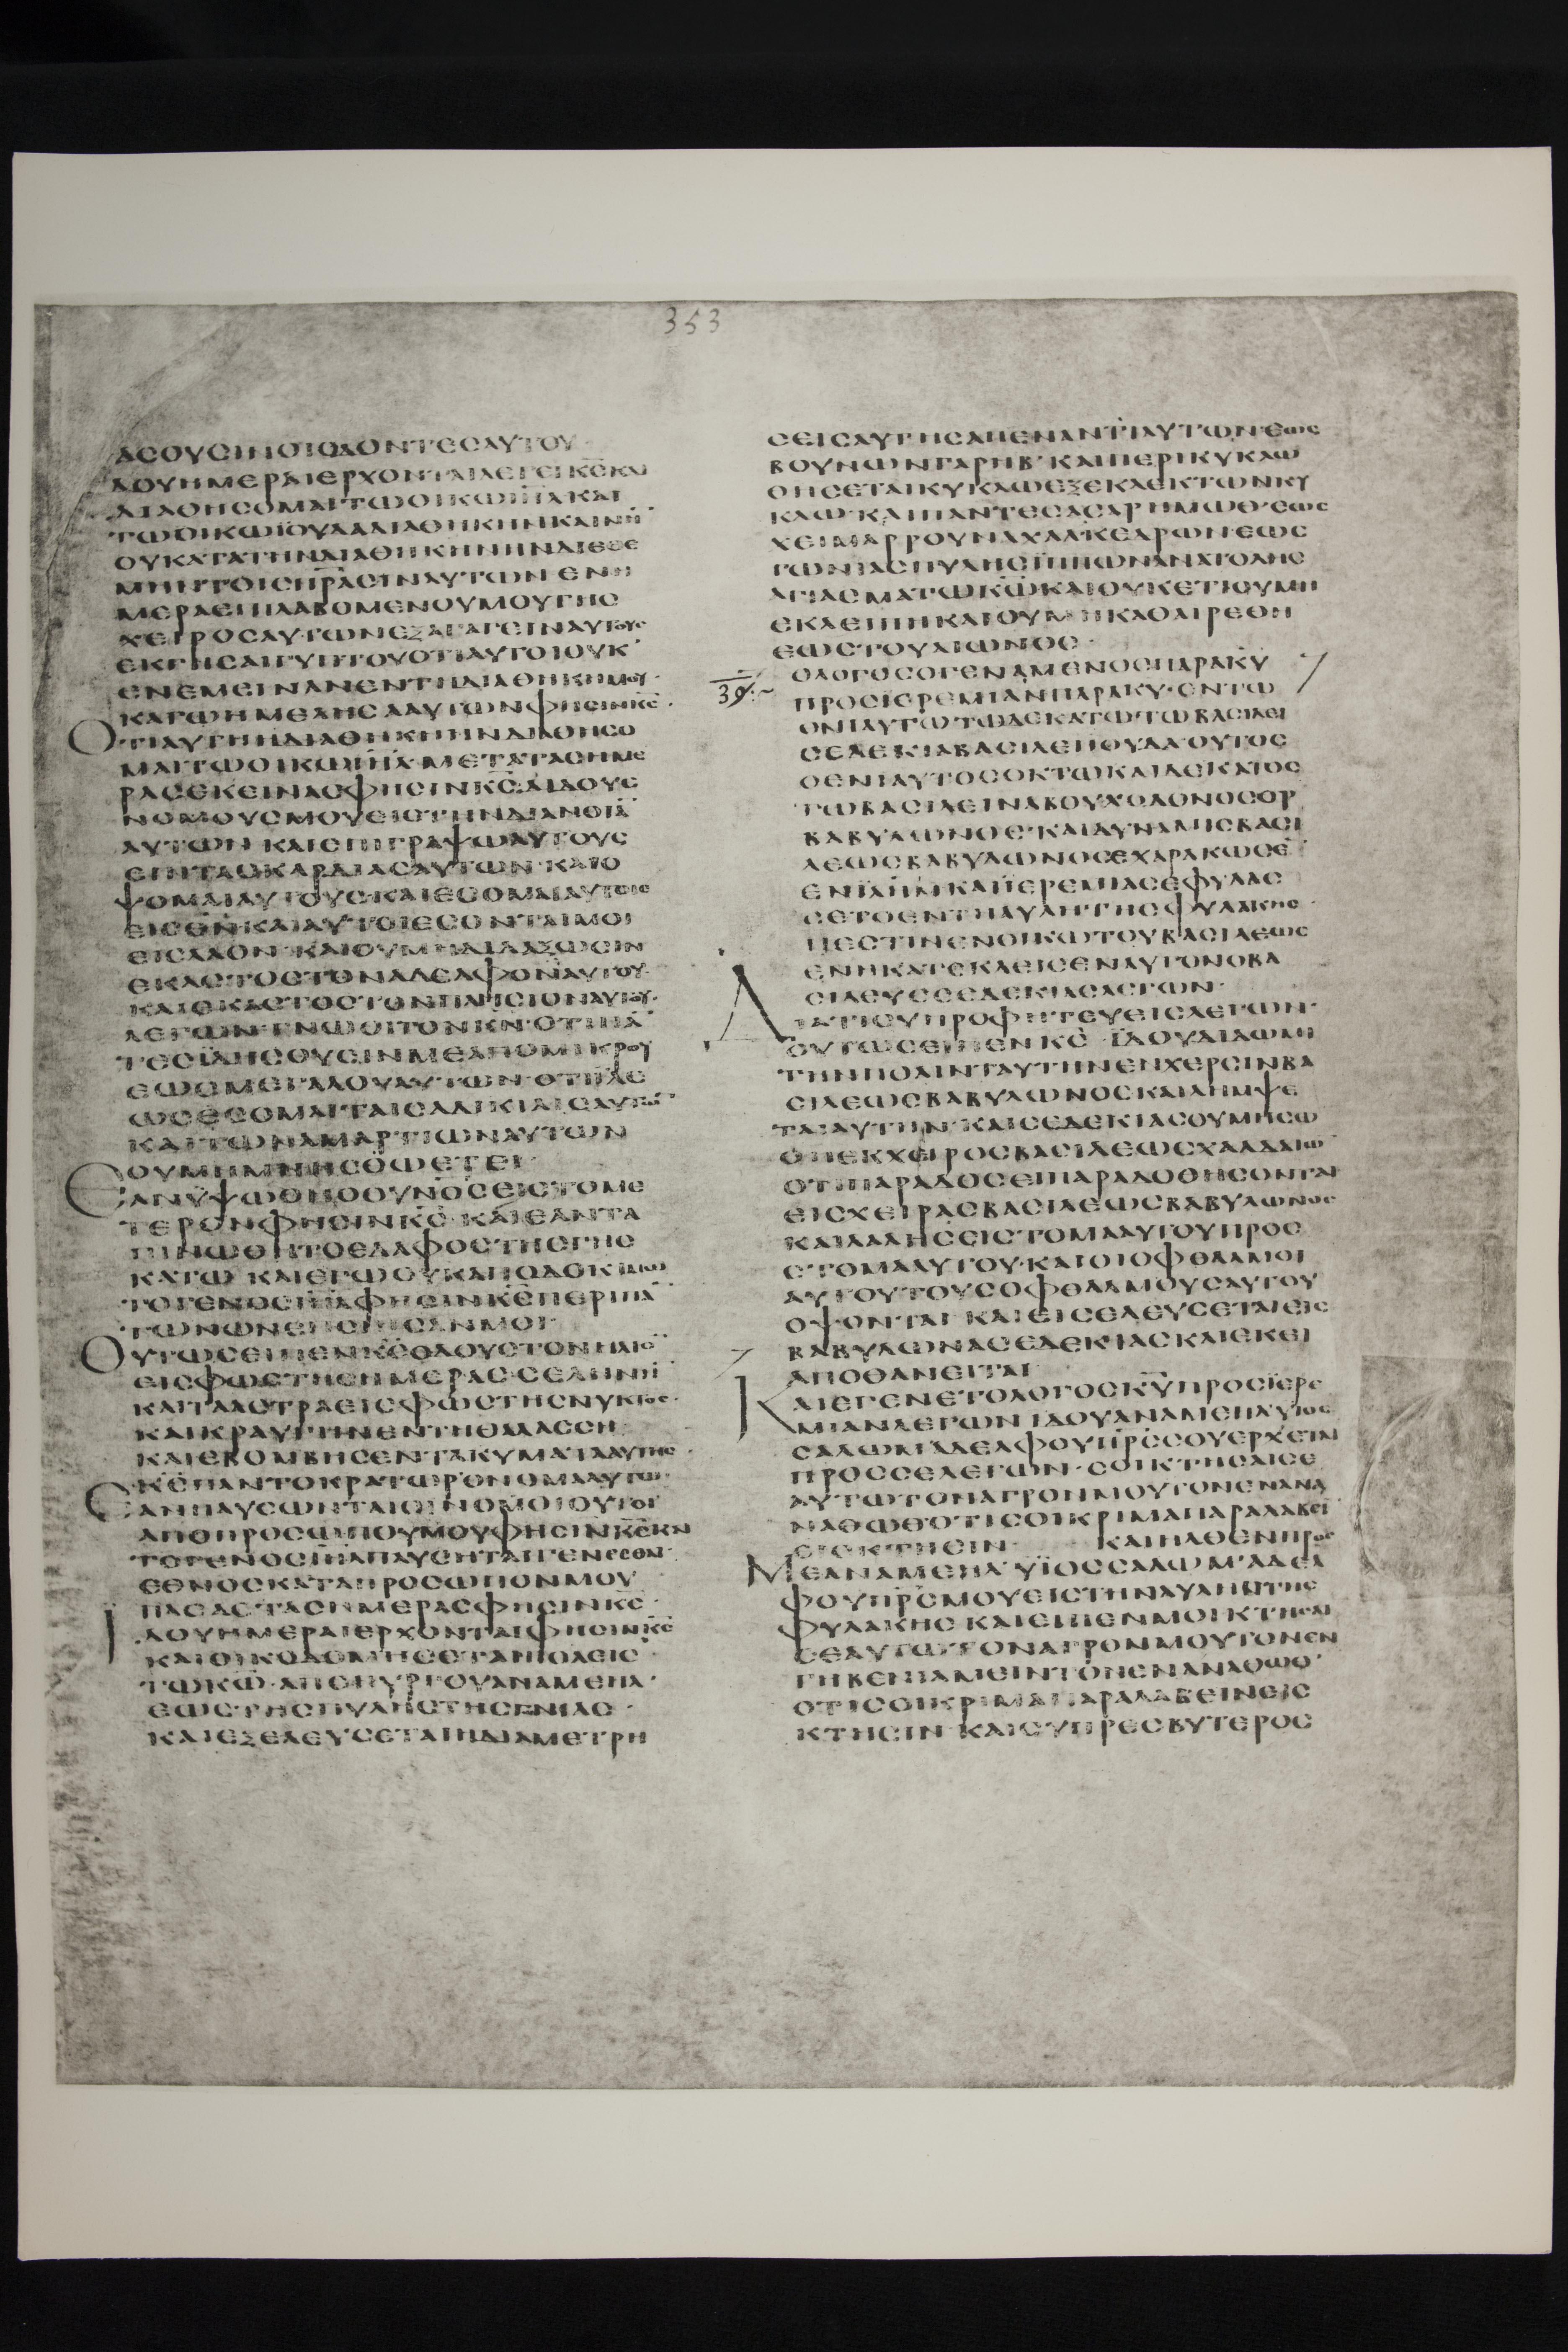 353
ΑСΟΥСΙΝΟΙΟΔΟΝΤЄСΑΥΤΟΥ·
ΔΟΥΗΜЄΡΑΙЄΡΧΟΝΤΑΙΛЄΓЄΙΚ̅С̅ΚΑΙ
ΔΙΑΘΗСΟΜΑΙΤΩΟΙΚΩΙΗ̅Λ̅ΚΑΙ
ΤΩΟΙΚΩΪΟΥΔΑΔΙΑΘΗΚΗΝΚΑΙΝΗ̅
ΟΥΚΑΤΑΤΗΝΔΙΑΘΗΚΗΝΗΝΔΙЄΘЄ
ΜΗΝΤΟΙСΠ̅Ρ̅ΑСΙΝΑΥΤΩΝЄΝΗ
ΜЄΡΑЄΠΙΛΑΒΟΜЄΝΟΥΜΟΥΤΗС
ΧЄΙΡΟСΑΥΤΩΝЄΞΑΓΑΓЄΙΝΑΥΤΟΥС
ЄΚΓΗСΑΙΓΥΠΤΟΥΟΤΙΑΥΤΟΙΟΥΚ
ЄΝЄΜЄΙΝΑΝЄΝΤΗΔΙΑΘΗΚΗΜΟΥ·
ΚΑΓΩΗΜЄΛΗСΑΑΥΤΩΝΦΗСΙΝΚ̅С̅·
ΟΤΙΑΥΤΗΗΔΙΑΘΗΚΗΗΝΔΙΑΘΗСΟ
ΜΑΙΤΩΟΙΚΩΙΗ̅Λ̅·ΜЄΤΑΤΑСΗΜЄ
ΡΑСЄΚЄΙΝΑСΦΗСΙΝΚ̅С̅ΔΙΔΟΥС
ΝΟΜΟΥСΜΟΥЄΙСΤΗΝΔΙΑΝΟΙΑ̅
ΑΥΤΩΝ·ΚΑΙЄΠΙΓΡΑΨΩΑΥΤΟΥС
ЄΠΙΤΑСΚΑΡΔΙΑСΑΥΤΩΝ·ΚΑΙΟ
ΨΟΜΑΙΑΥΤΟΥС·ΚΑΙЄСΟΜΑΙΑΥΤΟΙС
ЄΙСΘ̅Ν̅·ΚΑΙΑΥΤΟΙЄСΟΝΤΑΙΜΟΙ
ЄΙСΛΑΟΝ·ΚΑΙΟΥΜΗΔΙΔΑΞΩСΙΝ
ЄΚΑСΤΟСΤΟΝΑΔЄΛΦΟΝΑΥΤΟΥ·
ΚΑΙЄΚΑСΤΟСΤΟΝΠΛΗСΙΟΝΑΥΤΟΥ·
ΛЄΓΩΝ·ΓΝΩΘΙΤΟΝΚ̅Ν̅·ΟΤΙΠΑ̅
ΤЄСЄΙΔΗСΟΥСΙΝΜЄΑΠΟΜΙΚΡΟΥ
ЄΩСΜЄΓΑΛΟΥΑΥΤΩΝ·ΟΤΙΙΛЄ
ΩСЄСΟΜΑΙΤΑΙСΑΔΙΚΙΑΙСΑΥΤΩ̅·
ΚΑΙΤΩΝΑΜΑΡΤΙΩΝΑΥΤΩΝ
ΟΥΜΗΜΝΗСΘΩЄΤΙ·
ЄΑΝΥΨΩΘΗΟΟΥΝΟСЄΙСΤΟΜЄ
ΤЄΡΟΝΦΗСΙΝΚ̅С̅·ΚΑΙЄΑΝΤΑ
ΠΙΝΩΘΗΤΟЄΔΑΦΟСΤΗСΓΗС
ΚΑΤΩ·ΚΑΙЄΓΩΟΥΚΑΠΟΔΟΚΙΜΩ
ΤΟΓЄΝΟСΙΗ̅Λ̅ΦΗСΙΝΚ̅С̅ΠЄΡΙΠΑ̅
ΤΩΝΩΝЄΠΟΙΗСΑΝΜΟΙ·
ΟΥΤΩСЄΙΠЄΝΚ̅С̅ΟΔΟΥСΤΟΝΗΛΙΟ̅
ЄΙСΦΩСΤΗСΗΜЄΡΑС·СЄΛΗΝΗ̅
ΚΑΙΑСΤΡΑЄΙСΦΩСΤΗСΝΥΚΤΟС·
ΚΑΙΚΡΑΥΓΗΝЄΝΤΗΘΑΛΑССΗ
ΚΑΙЄΒΟΜΒΗСЄΝΤΑΚΥΜΑΤΑΑΥΤΗС·
Κ̅С̅ΠΑΝΤΟΚΡΑΤΩΡΟΝΟΜΑΑΥΤΩ·
ЄΑΝΠΑΥСΩΝΤΑΙΟΙΝΟΜΟΙΟΥΤΟΙ
ΑΠΟΠΡΟСΩΠΟΥΜΟΥΦΗСΙΝΚ̅С̅ΚΑΙ
ΤΟΓЄΝΟСΙΗ̅Λ̅ΠΑΥСΗΤΑΙΓЄΝЄСΘΑΙ·
ЄΘΝΟСΚΑΤΑΠΡΟСΩΠΟΝΜΟΥ
ΠΑСΑСΤΑСΗΜЄΡΑСΦΗСΙΝΚ̅С̅·
ΙΔΟΥΗΜЄΡΑΙЄΡΧΟΝΤΑΙΦΗСΙΝΚ̅С̅
ΚΑΙΟΙΚΟΔΟΜΗСЄΤΑΙΠΟΛΙС
ΤΩΚ̅Ω̅·ΑΠΟΠΥΡΓΟΥΑΝΑΜЄΗΛ·
ЄΩСΤΗСΠΥΛΗСΤΗСΓΩΝΙΑС·
ΚΑΙЄΞЄΛЄΥСЄΤΑΙΗΔΙΑΜЄΤΡΗ
СЄΙСΑΥΤΗСΑΠЄΝΑΝΤΙΑΥΤΩΝ·ЄΩС
ΒΟΥΝΩΝΓΑΡΗΒ·ΚΑΙΠЄΡΙΚΥΚΛΩ
ΘΗСЄΤΑΙΚΥΚΛΩЄΞЄΚΛЄΚΤΩΝΚΥ
ΚΛΩ·ΚΑΙΠΑΝΤЄСΑСΑΡΗΜΩΘ·ЄΩС
ΧЄΙΜΑΡΡΟΥΝΑΧΑΛΚЄΔΡΩΝЄΩС
ΓΩΝΙΑСΠΥΛΗСΙΠΠΩΝΑΝΑΤΟΛΗС
ΑΓΙΑСΜΑΤΩΚ̅Ω̅ΚΑΙΟΥΚЄΤΙΟΥΜΗ
ЄΚΛЄΙΠΗΚΑΙΟΥΜΗΚΑΘΑΙΡЄΘΗ
ЄΩСΤΟΥΑΙΩΝΟС·
39
ΟΛΟΓΟСΟΓЄΝΑΜЄΝΟСΠΑΡΑΚ̅Υ̅
ΠΡΟСΙЄΡЄΜΙΑΝΠΑΡΑΚ̅Υ̅·ЄΝΤΩ
ЄΝΙΑΥΤΩΤΩΔЄΚΑΤΩΤΩΒΑСΙΛЄΙ
СЄΔЄΚΙΑΒΑСΙΛЄΙΪΟΥΔΑ·ΟΥΤΟС
ΟЄΝΙΑΥΤΟСΟΚΤΩΚΑΙΔЄΚΑΤΟС
ΤΩΒΑСΙΛЄΙΝΑΒΟΥΧΟΔΟΝΟСΟΡ
ΒΑΒΥΛΩΝΟС·ΚΑΙΔΥΝΑΜΙСΒΑСΙ
ΛЄΩСΒΑΒΥΛΩΝΟСЄΧΑΡΑΚΩСЄ̅
ЄΝΙΛ̅Η̅Μ̅·ΚΑΙΙЄΡЄΜΙΑСЄΦΥΛΑС
СЄΤΟЄΝΤΗΑΥΛΗΤΗСΦΥΛΑΚΗС·
ΗЄСΤΙΝЄΝΟΙΚΩΤΟΥΒΑСΙΛЄΩС
ЄΝΗΚΑΤЄΚΛЄΙСЄΝΑΥΤΟΝΟΒΑ
СΙΛЄΥССЄΔЄΚΙΑСΛЄΓΩΝ·
ΔΙΑΤΙСΥΠΡΟΦΗΤЄΥЄΙСΛЄΓΩΝ·
ΟΥΤΩСЄΙΠЄΝΚ̅С̅·ΪΔΟΥΔΙΔΩΜΙ
ΤΗΝΠΟΛΙΝΤΑΥΤΗΝЄΝΧЄΡСΙΝΒΑ
СΙΛЄΩСΒΑΒΥΛΩΝΟСΚΑΙΛΗΜΨЄ
ΤΑΙΑΥΤΗΝ·ΚΑΙСЄΔЄΚΙΑСΟΥΜΗСΩ
ΘΗЄΚΧЄΙΡΟСΒΑСΙΛЄΩСΧΑΛΔΑΙΩ̅
ΟΤΙΠΑΡΑΔΟСЄΙΠΑΡΑΔΟΘΗСΟΝΤΑΙ
ЄΙСΧЄΙΡΑСΒΑСΙΛЄΩСΒΑΒΥΛΩΝΟС
ΚΑΙΛΑΛΗСЄΙСΤΟΜΑΑΥΤΟΥΠΡΟС
СΤΟΜΑΑΥΤΟΥ·ΚΑΙΟΙΟΦΘΑΛΜΟΙ
ΑΥΤΟΥΤΟΥСΟΦΘΑΛΜΟΥСΑΥΤΟΥ
ΟΨΟΝΤΑΙ·ΚΑΙЄΙСЄΛЄΥСЄΤΑΙЄΙС
ΒΑΒΥΛΩΝΑСЄΔЄΚΙΑСΚΑΙЄΚЄΙ
ΑΠΟΘΑΝЄΙΤΑΙ
ΚΑΙЄΓЄΝЄΤΟΛΟΓΟСΚ̅Υ̅ΠΡΟСΙЄΡЄ
ΜΙΑΝΛЄΓΩΝΙΔΟΥΑΝΑΜЄΗΛΥΙΟС
СΑΛΩΜΑΔЄΛΦΟΥΠ̅Ρ̅С̅СΟΥЄΡΧЄΤΑΙ
ΠΡΟССЄΛЄΓΩΝ·СΟΙΚΤΗСΑΙСЄ
ΑΥΤΩΤΟΝΑΓΡΟΝΜΟΥΤΟΝЄΝΑΝΑ
ΝΑΘΩΘ·ΟΤΙСΟΙΚΡΙΜΑΠΑΡΑΛΑΒЄΙ̅
ЄΙСΚΤΗСΙΝ· ΚΑΙΗΛΘЄΝΠΡΟС
ΜЄΑΝΑΜЄΗΛ·ΥΪΟССΑΛΩΜ·ΑΔЄΛ
ΦΟΥΠ̅Ρ̅С̅ΜΟΥЄΙСΤΗΝΑΥΛΗΝΤΗС
ΦΥΛΑΚΗС·ΚΑΙЄΙΠЄΝΜΟΙΚΤΗСΑΙ
СЄΑΥΤΩΤΟΝΑΓΡΟΝΜΟΥΤΟΝЄΝ
ΓΗΒЄΝΙΑΜЄΙΝΤΟΝЄΝΑΝΑΘΩΘ·
ΟΤΙСΟΙΚΡΙΜΑΠΑΡΑΛΑΒЄΙΝЄΙС
ΚΤΗСΙΝ·ΚΑΙСΥΠΡЄСΒΥΤЄΡΟС